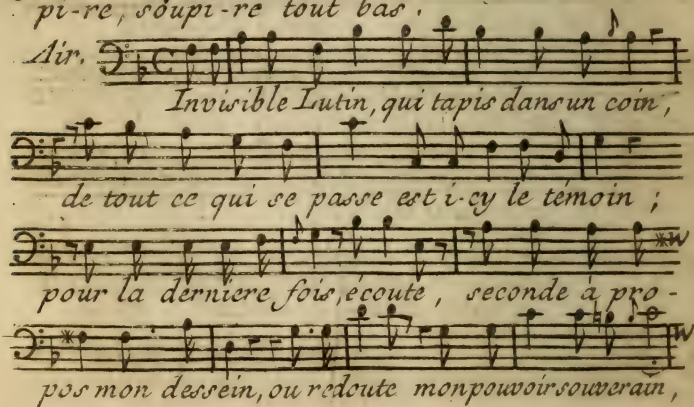 pi-re, soupi-re tout bas.
Air.
Invisible Lutin, qui tapis dans un coin,
de tout ce qui se passe est i-cy le témoin;
pour la derniere fois, écoute, seconde à pro-
pos mon dessein, ou redoute mon pouvoir souverain,